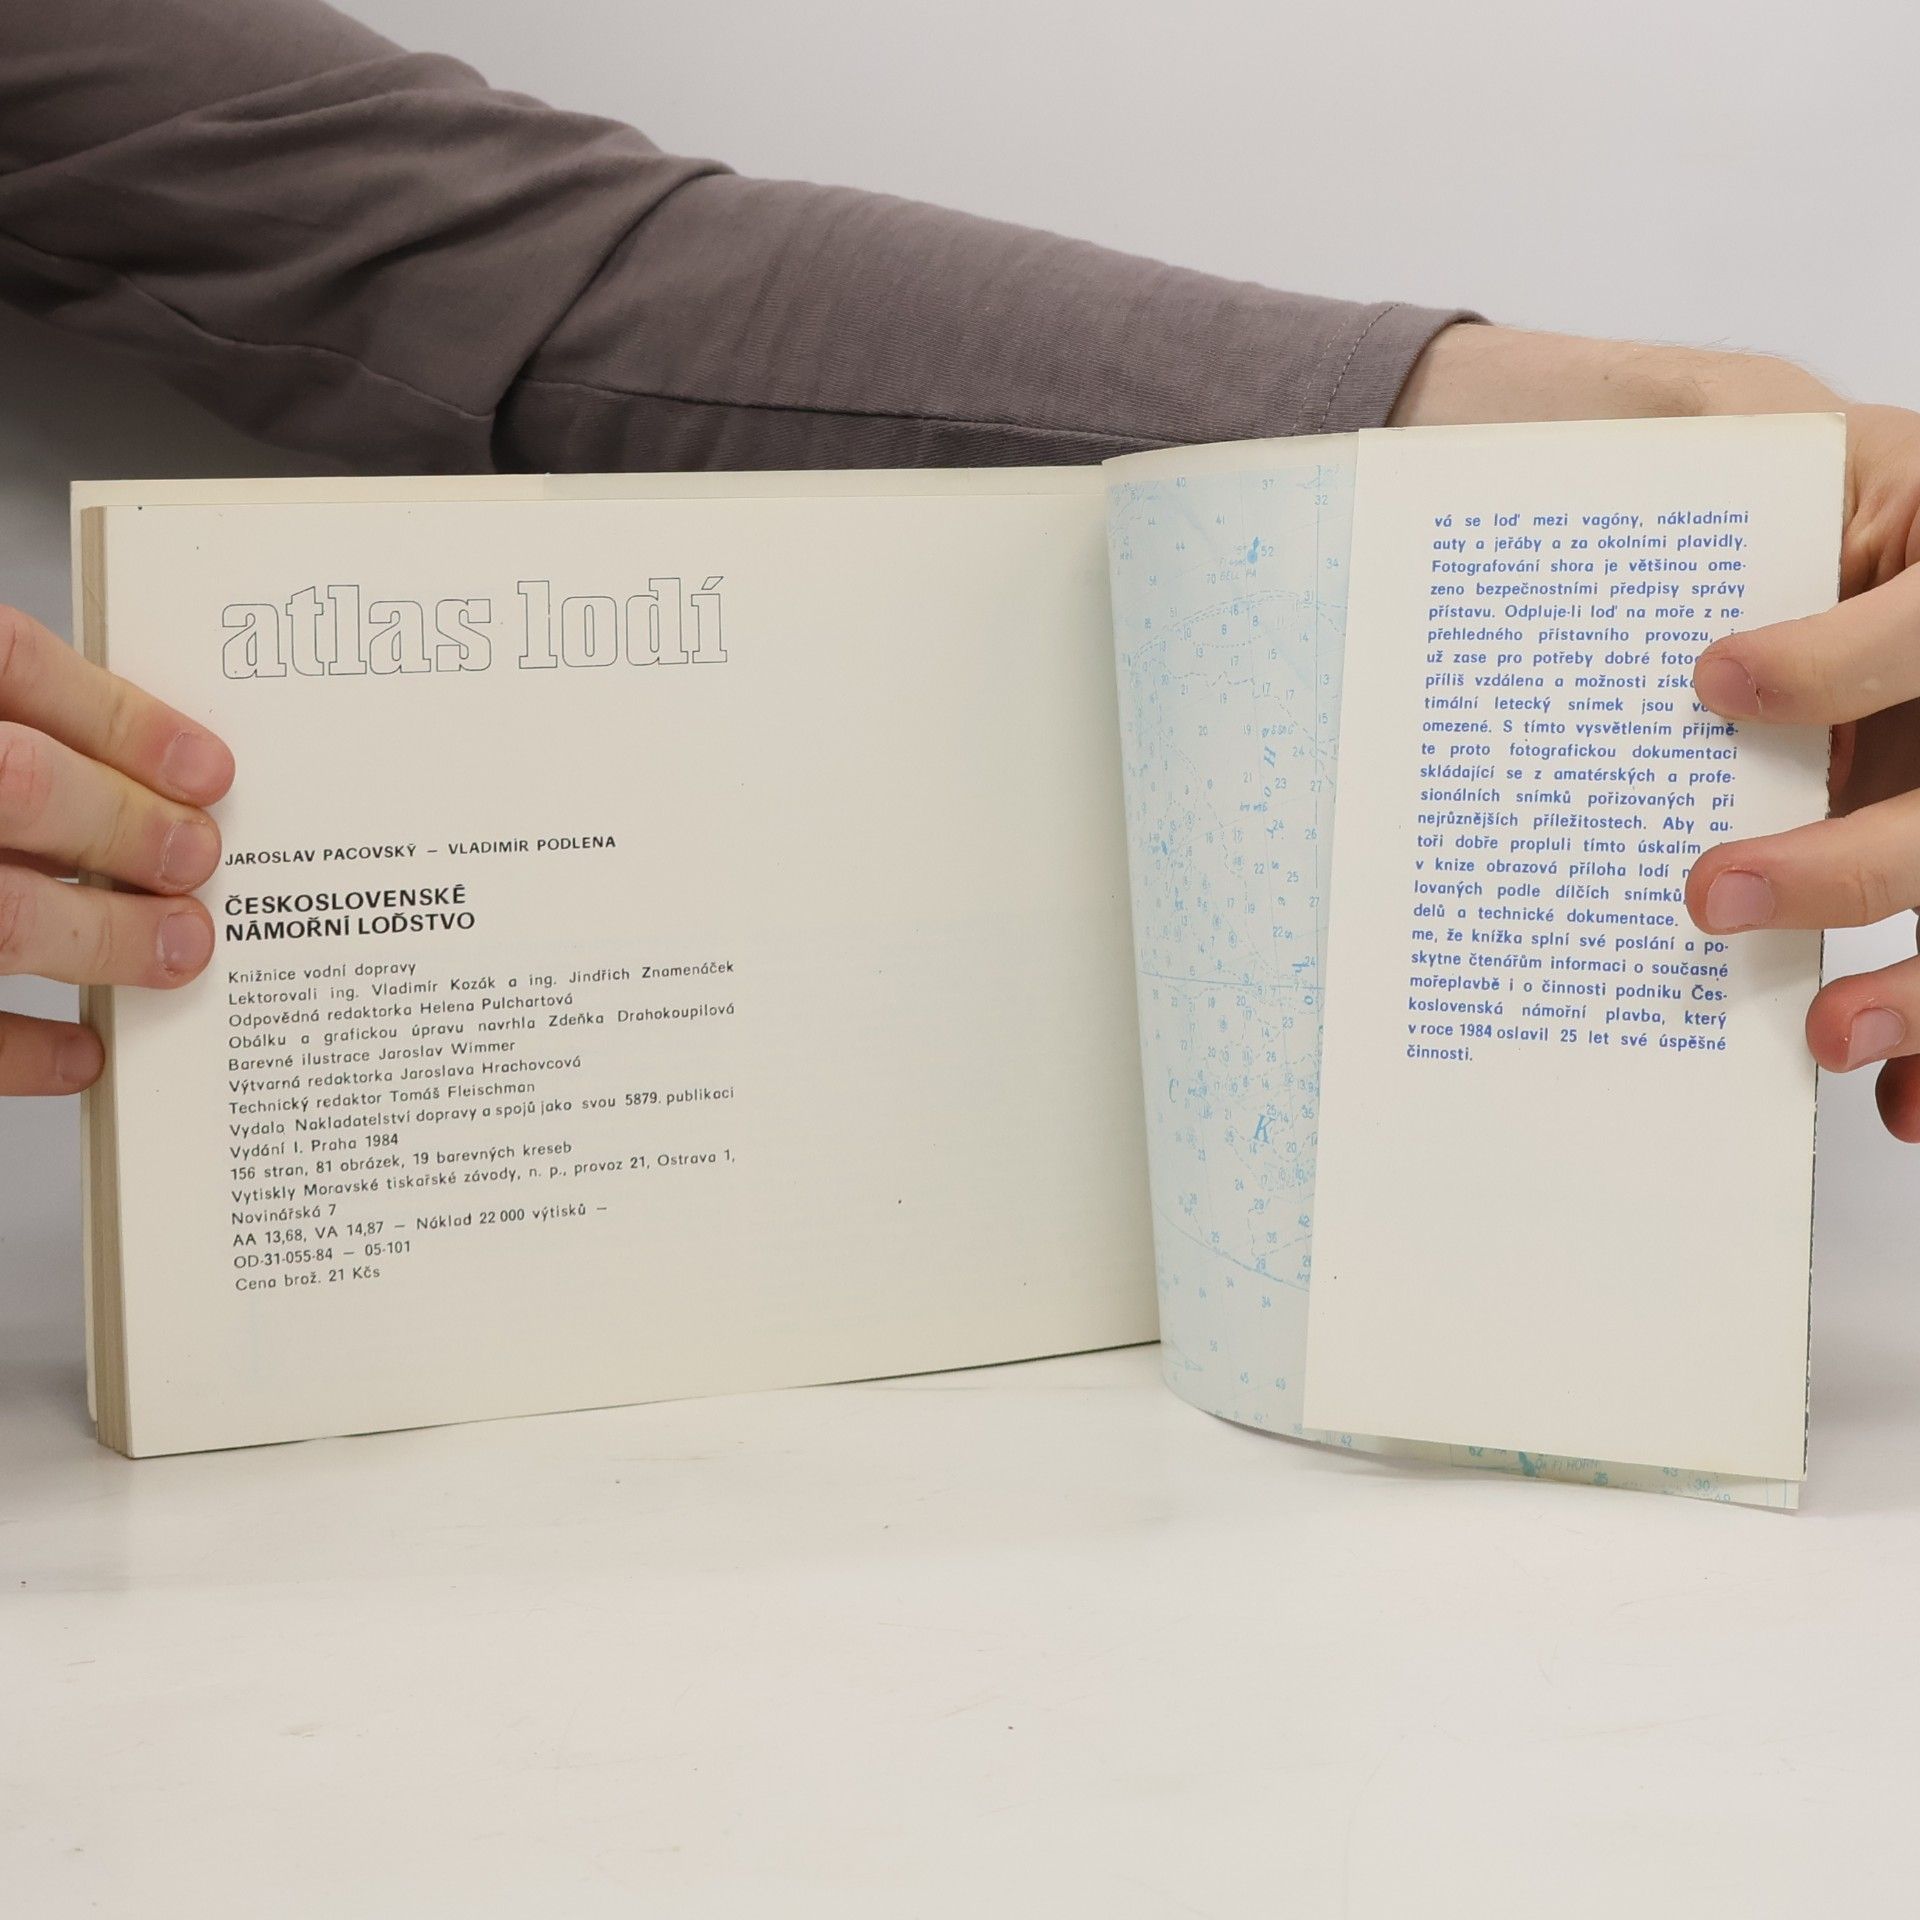 atlas lodí
JAROSLAV PACOVSKÝ – VLADIMÍR PODLENA
ČESKOSLOVENSKÉ
NÁMOŘNÍ LOĎSTVO
Knižnice vodní dopravy
Lektorovali ing. Vladimír Kozák a ing. Jindřich Znamenáček
Odpovědná redaktorka Helena Pulchartová
Obálku a grafickou úpravu navrhla Zdeňka Drahokoupilová
Barevné ilustrace Jaroslav Wimmer
Výtvarná redaktorka Jaroslava Hrachovcová
Technický redaktor Tomáš Fleischman
Vydalo Nakladatelství dopravy a spojů jako svou 5879. publikaci
Vydání I. Praha 1984
156 stran, 81 obrázek, 19 barevných kreseb
Vytiskly Moravské tiskařské závody, n. p., provoz 21, Ostrava 1,
Novinářská 7
AA 13,68, VA 14,87 – Náklad 22 000 výtisků –
OD-31-055-84 – 05-101
Cena brož. 21 Kčs
vá se loď mezi vagóny, nákladními
auty a jeřáby a za okolními plavidly.
Fotografování shora je většinou ome-
zeno bezpečnostními předpisy správy
přístavu. Odpluje-li loď na moře z ne-
přehledného přístavního provozu,
už zase pro potřeby dobré
příliš vzdálena a možnosti
timální letecký snímek jsou
omezené. S tímto vysvětlením přijmě-
te proto fotografickou dokumentaci
skládající se z amatérských a profe-
sionálních snímků pořizovaných při
nejrůznějších příležitostech. Aby au-
toři dobře propluli tímto úskalím
v knize obrazová příloha lodí
lovaných podle dílčích snímků,
delů a technické dokumentace.
me, že knížka splní své poslání a po-
skytne čtenářům informaci o současné
mořeplavbě i o činnosti podniku Čes-
koslovenská námořní plavba, který
v roce 1984 oslavil 25 let své úspěšné
činnosti.